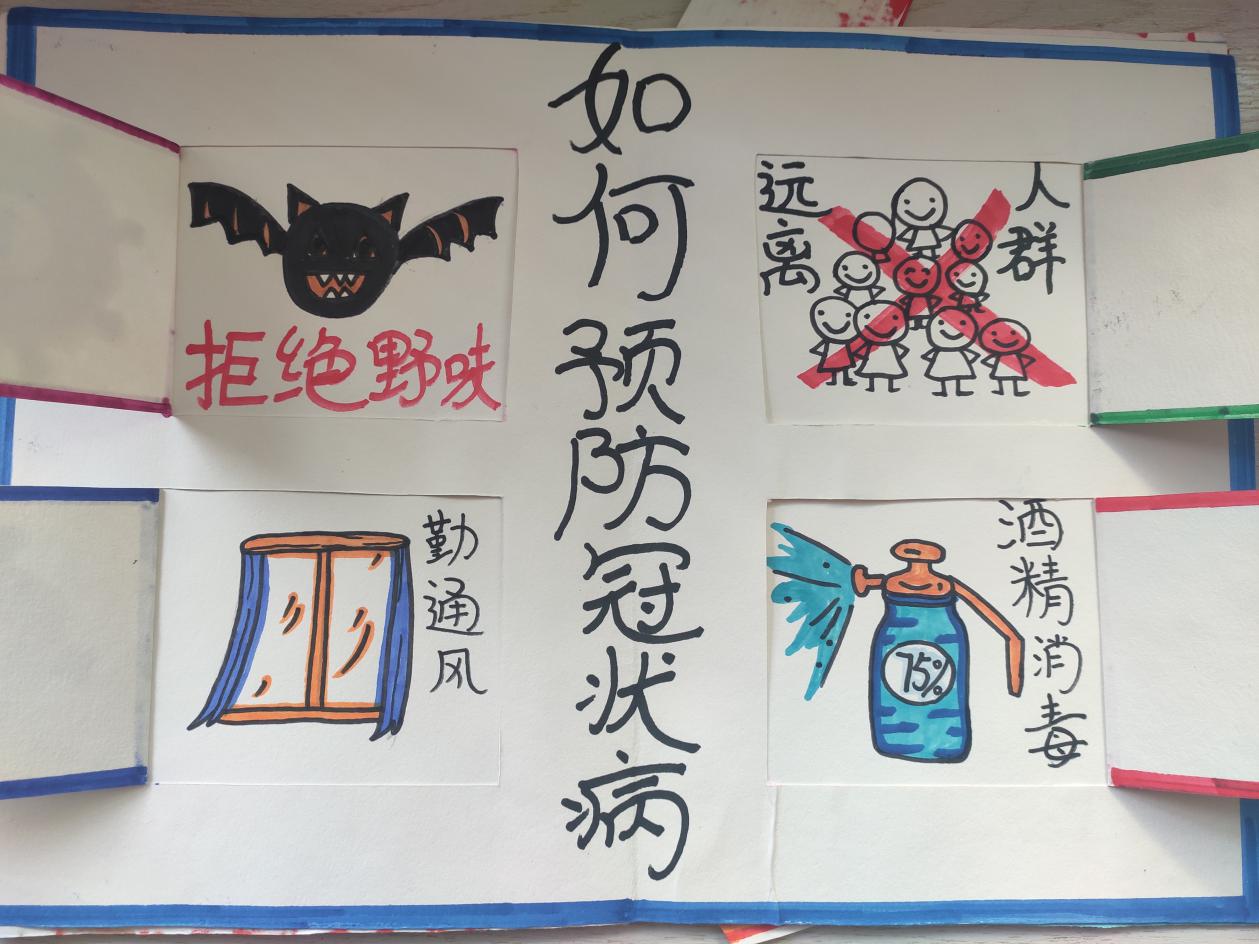 如何预防冠状病
拒绝野味
远离
人群
勤通风
75%
酒精消毒